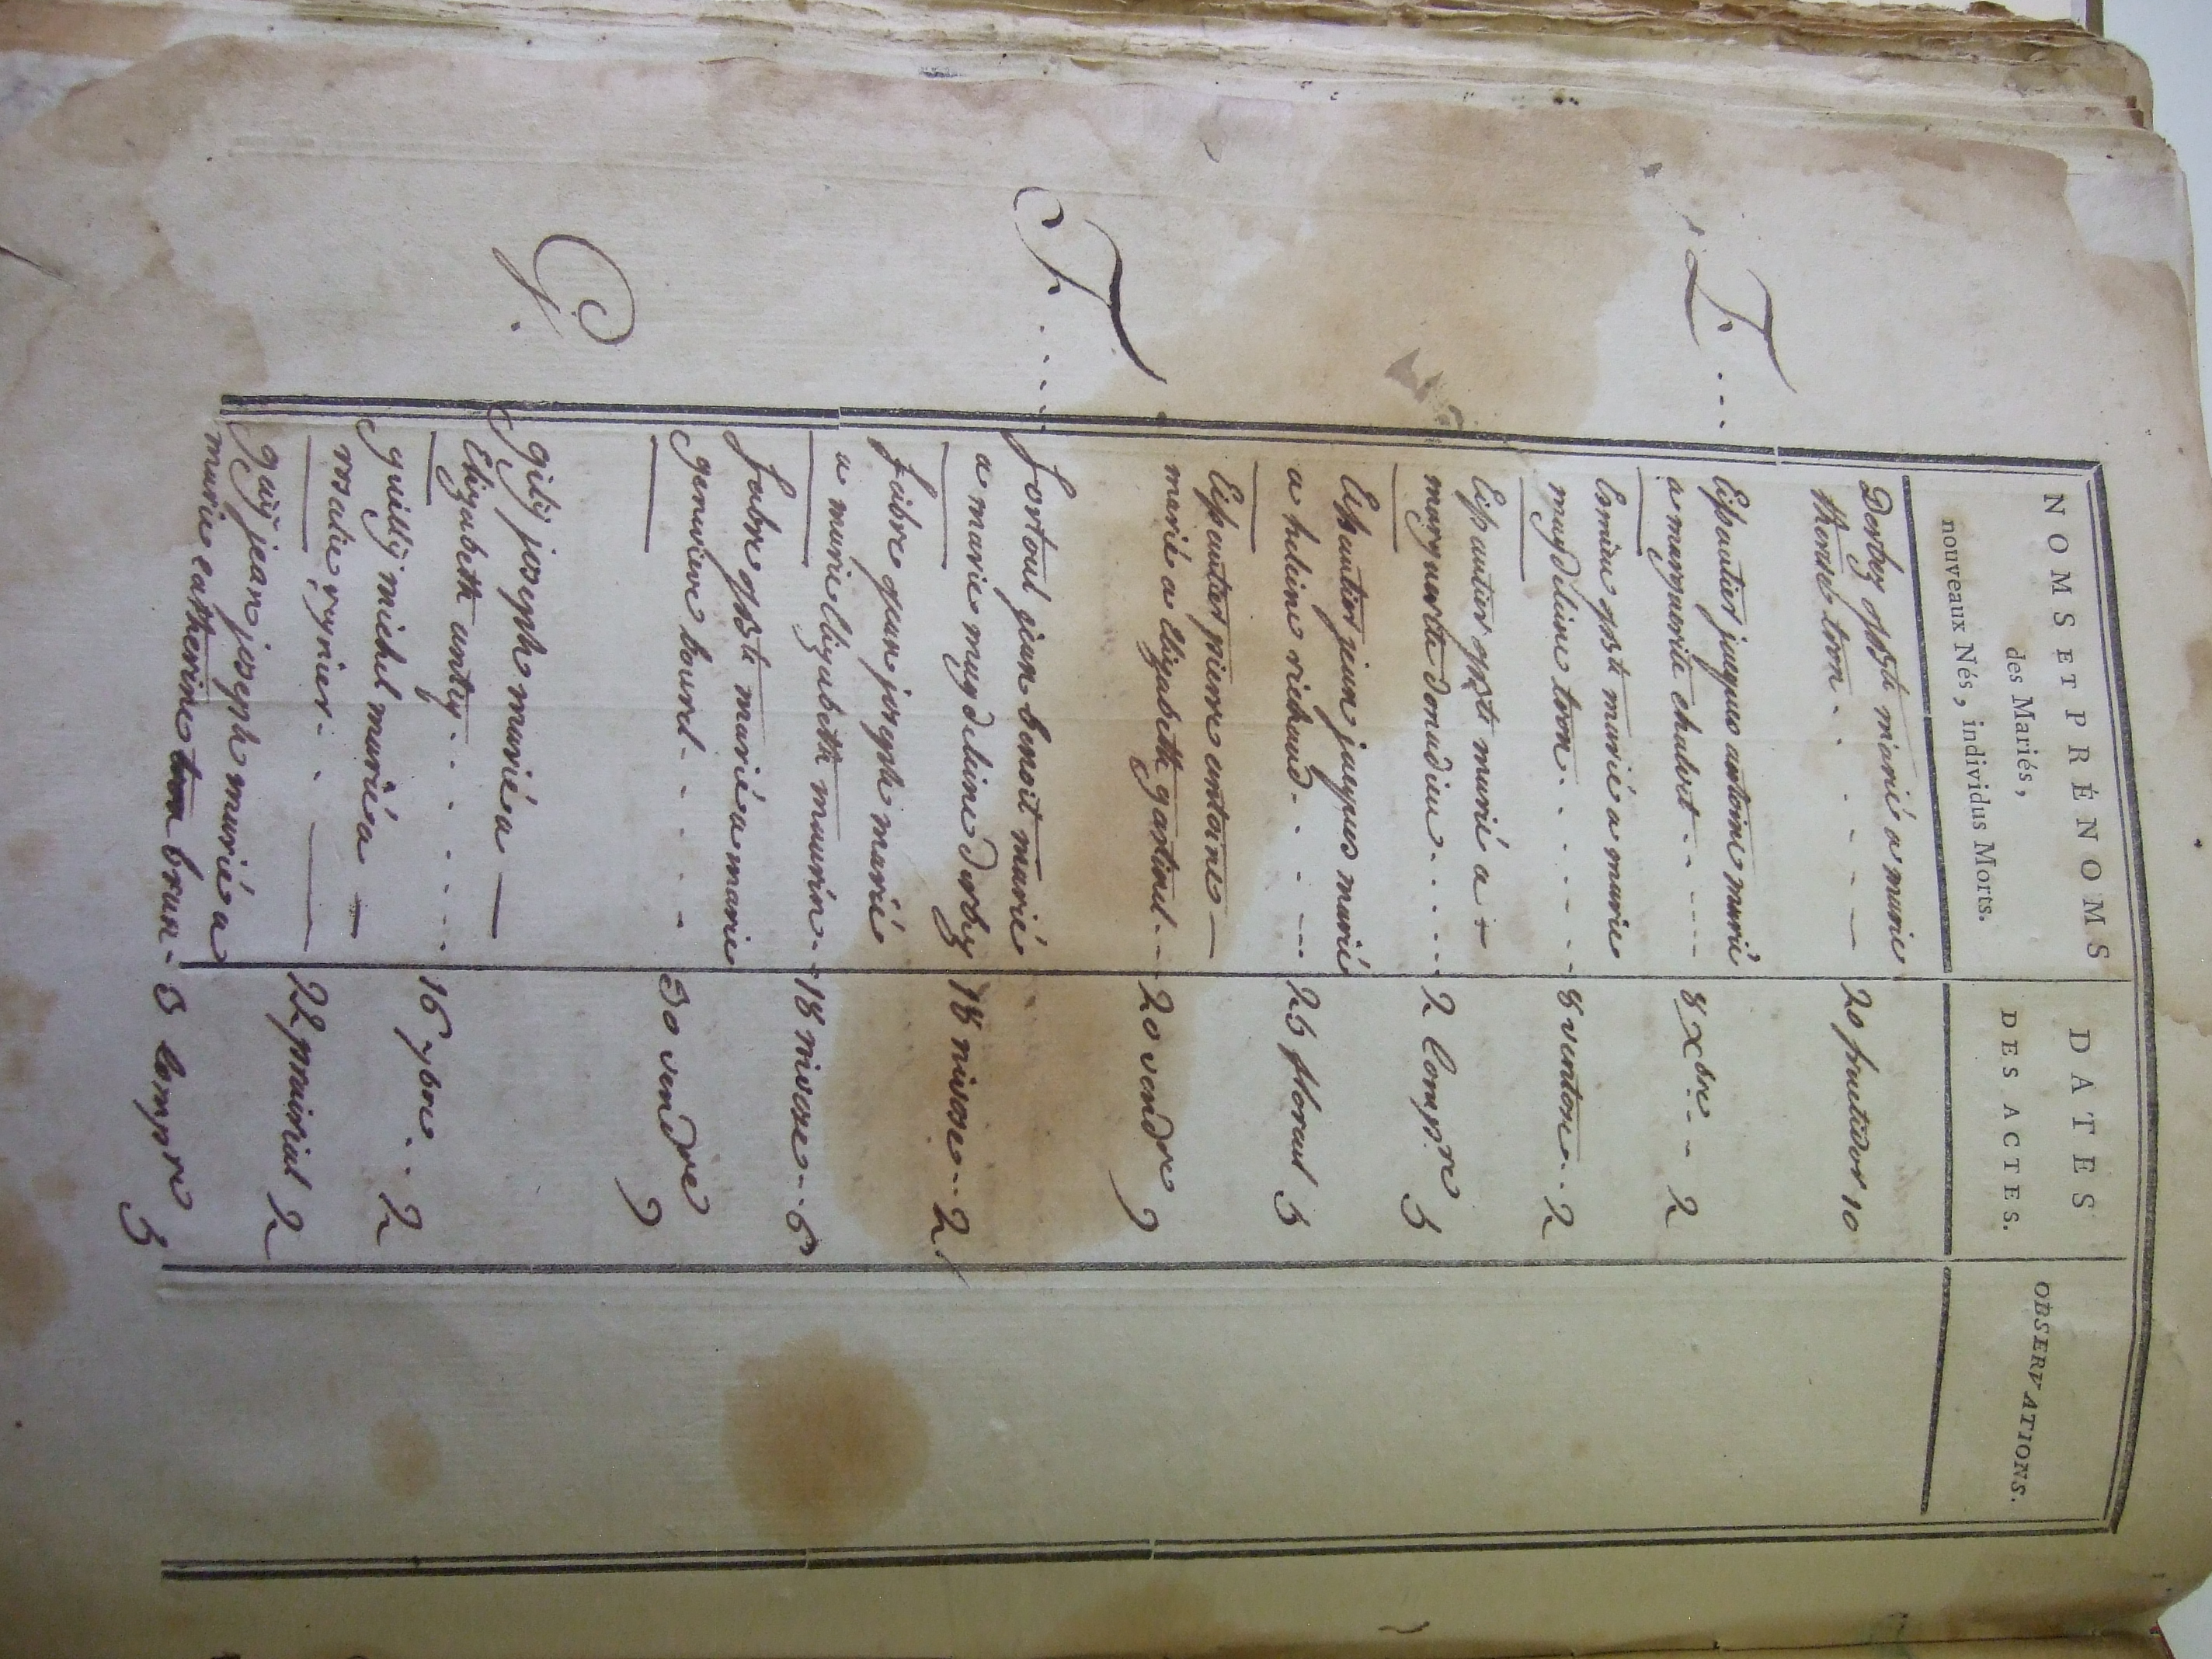 NOMS ET PRÉNOMS
des Mariés,
nouveaux Nés, individus Morts.
DATES
DES ACTES.
OBSERVATIONS.
marié a marie
therese tron . . . . . — 20 fructidor 10
E . . . .
Espautier jacques antoine marié
a marguerite chabot . . . . . 8 Xbre . . 2
marié a marie
magdeleine tron . . . . . 8 ventose . . 2
Espautier marié a
marguerite donadieu . . . . . 2 Comp.re 3
Espautier jean jacques marié
a heleine richaud . . . . 25 floreal 3
Espautier pierre antoine —
marié a Elizabeth gastinel . . 20 vendre 9
F . . . .
fortoul jean benoit marié
a marie magdeleine derbez 18 nivose . . 2
faibre jean joseph marié
a marie Elizabeth maurin . 18 nivose . . 6
fabre marié a marie
genevieve . . . . 30 vendre 9
G .
gilij joseph marié a —
Elizabeth . . . . . 16 9bre . . 2
michel marié a —
rosalie reynier . . — 22 prairial 2
jean joseph marié a
marie catherine brun . 3 Compre 3